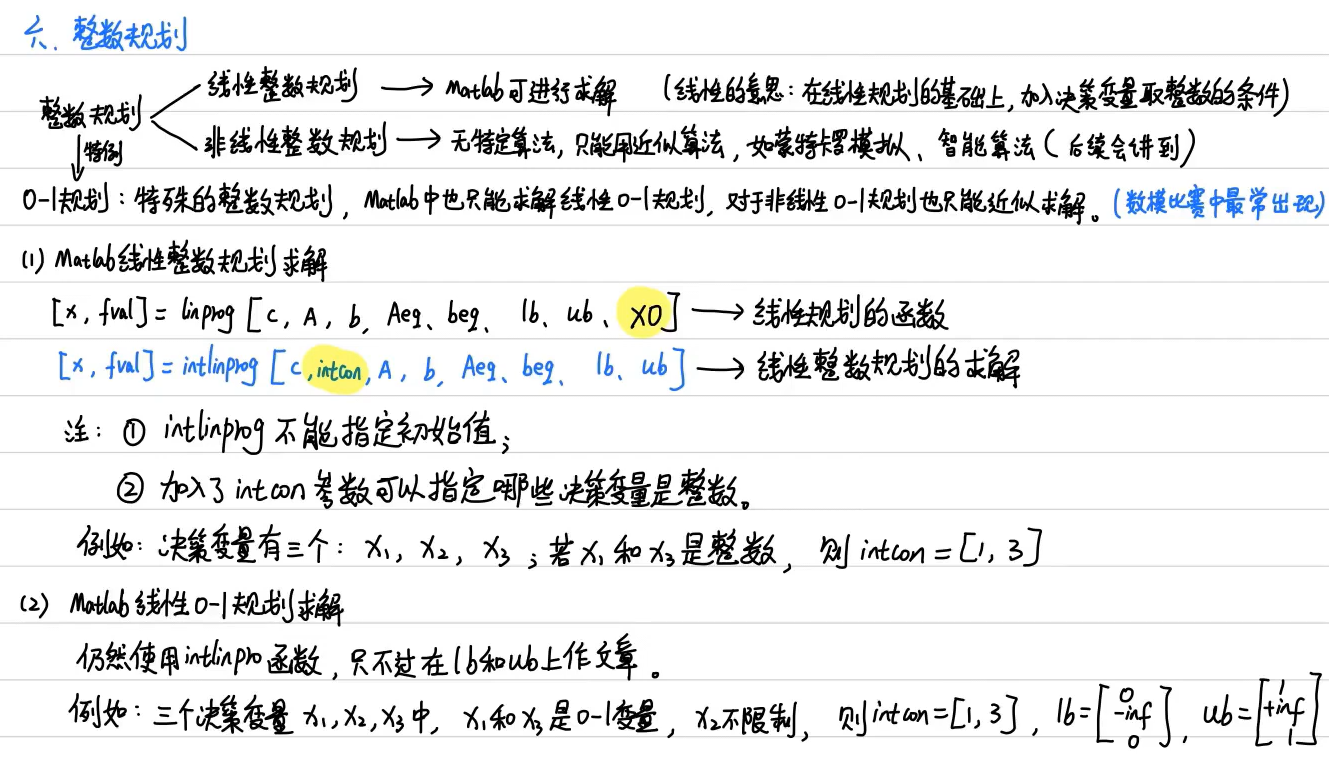 六、整数规划
线性整数规划 → Matlab可进行求解 (线性的意思：在线性规划的基础上，加入决策变量取整数的条件)
整数规划
非线性整数规划 → 无特定算法，只能用近似算法，如蒙特卡罗模拟、智能算法(后续会讲到)
↓特例
0-1规划：特殊的整数规划，Matlab中也只能求解线性0-1规划，对于非线性0-1规划也只能近似求解。(数模比赛中最常出现)
(1) Matlab线性整数规划求解
[x, fval] = linprog [c, A, b, Aeq、beq、lb、ub、X0] → 线性规划的函数
[x, fval] = intlinprog [c, intcon, A, b, Aeq、beq、lb、ub] → 线性整数规划的求解
注：① intlinprog 不能指定初始值；
② 加入了intcon参数可以指定哪些决策变量是整数。
例如：决策变量有三个：x₁, x₂, x₃；若x₁和x₃是整数，则intcon=[1, 3]
(2) Matlab线性0-1规划求解
仍然使用intlinpro函数，只不过在lb和ub上作文章。
例如：三个决策变量x₁,x₂,x₃中，x₁和x₃是0-1变量，x₂不限制，则intcon=[1, 3]，lb=[0 -inf 0]，ub=[1 +inf 1]